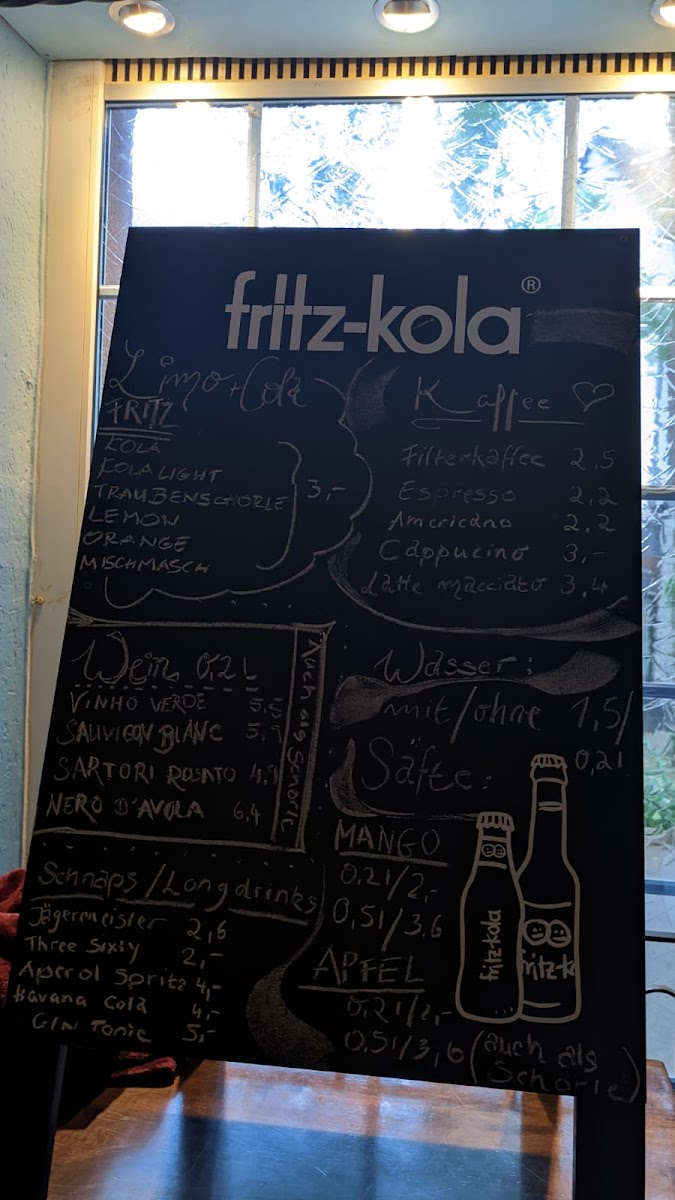 fritz-kola®
Limo + Cola
FRITZ
KOLA
KOLA LIGHT
TRAUBENSCHORLE
LEMON
ORANGE
MISCHMASCH
3,-
Kaffee ♡
Filterkaffee 2,5
Espresso 2,2
Americano 2,2
Cappucino 3,-
Latte macciato 3,4
Wein 0,2 L
VINHO VERDE
SAUVIGON BLANC
SARTORI ROSATO 4,9
NERO D'AVOLA 6,4
Auch als Schorle
Wasser:
mit/ohne 1,5/
0,2l
Säfte:
MANGO
0,2l/2,-
0,5l/3,6
APFEL
0,2l/2,-
0,5l/3,6 (auch als
Schorle)
Schnaps/Longdrinks
Jägermeister 2,6
Three Sixiy 2,-
Aperol Spritz 4,-
Havana Cola 4,-
GIN Tonic 5,-
fritz-kola
fritz-k